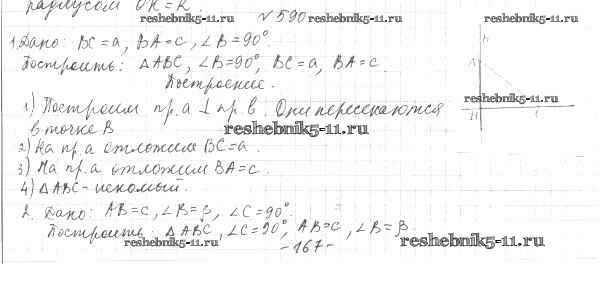 радиусом OK=R.
№590
1. Дано: BC=a, BA=c, ∠B=90°.
Построить: △ABC, ∠B=90°, BC=a, BA=c.
Построение.
1) Построим пр.a ⊥ пр.b. Они пересекаются
в точке B
2) На пр.a отложим BC=a.
3) На пр.a отложим BA=c.
4) △ABC - искомый.
2. Дано: AB=c, ∠B=β, ∠C=90°.
Построить: △ABC, ∠C=90°, AB=c, ∠B=β.
-167-
reshebnik5-11.ru
reshebnik5-11.ru
reshebnik5-11.ru
reshebnik5-11.ru
reshebnik5-11.ru